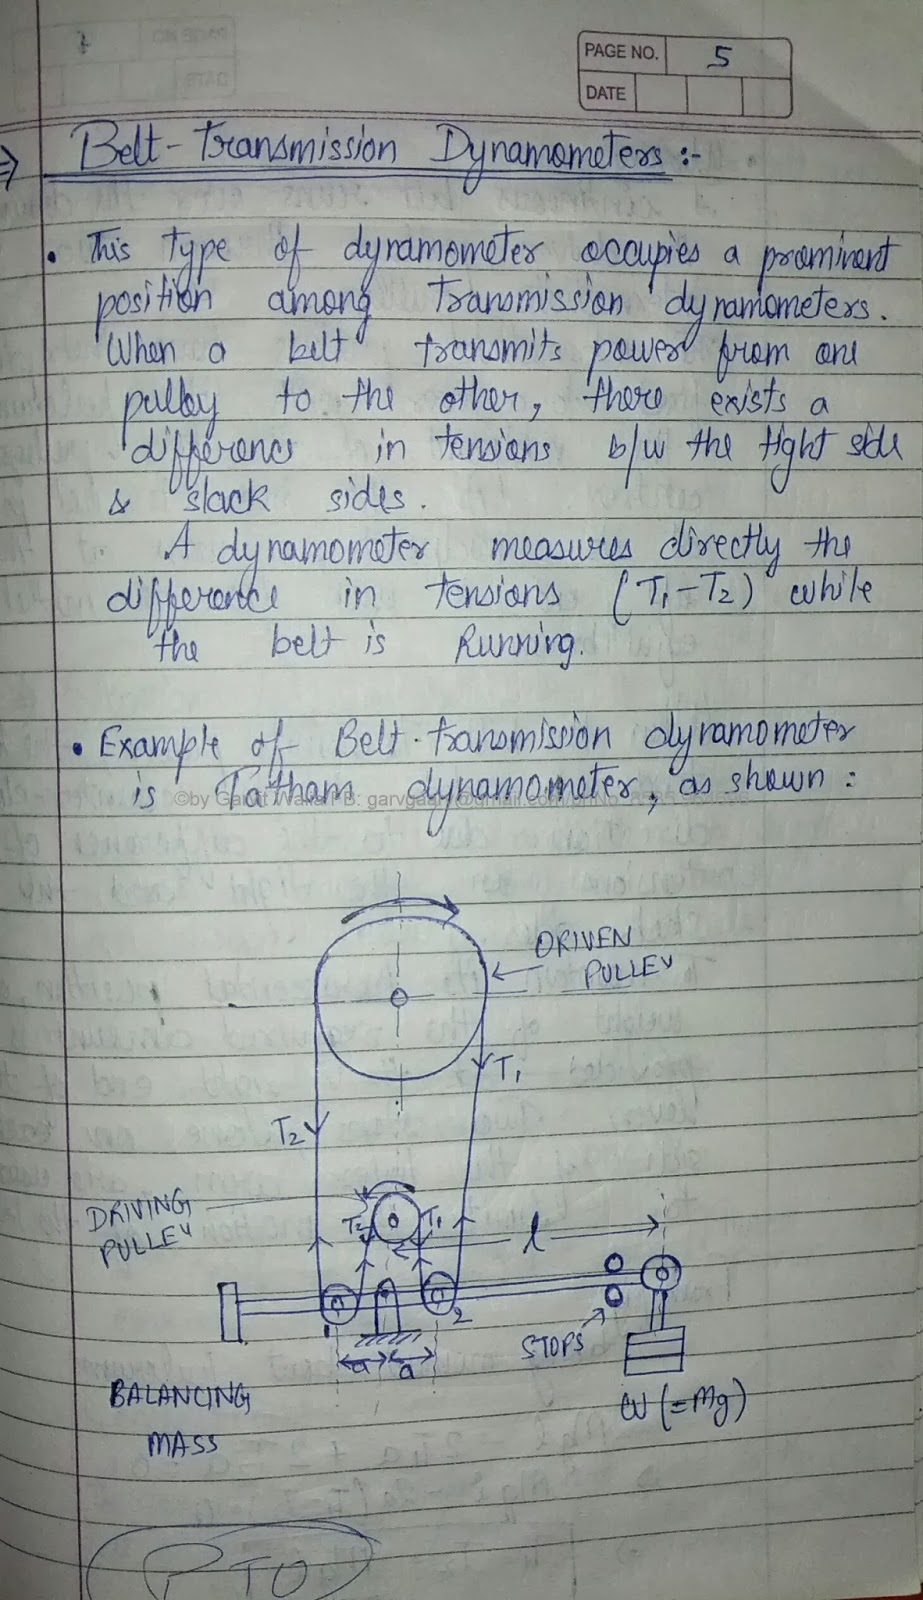 PAGE NO. 5
DATE
⇒ Belt-Transmission Dynamometers :-
• This type of dynamometer occupies a prominent
position among transmission dynamometers.
When a belt transmits power from one
pulley to the other, there exists a
difference in tensions b/w the tight side
& slack sides.
A dynamometer measures directly the
difference in tensions (T1-T2) while
the belt is Running.
• Example of Belt-transmission dynamometer
is Tatham dynamometer, as shown :
DRIVEN
PULLEY
T1
T2
DRIVING
PULLEY
T2
T1
l
1
2
STOPS
a
a
BALANCING
MASS
W(=Mg)
PTO